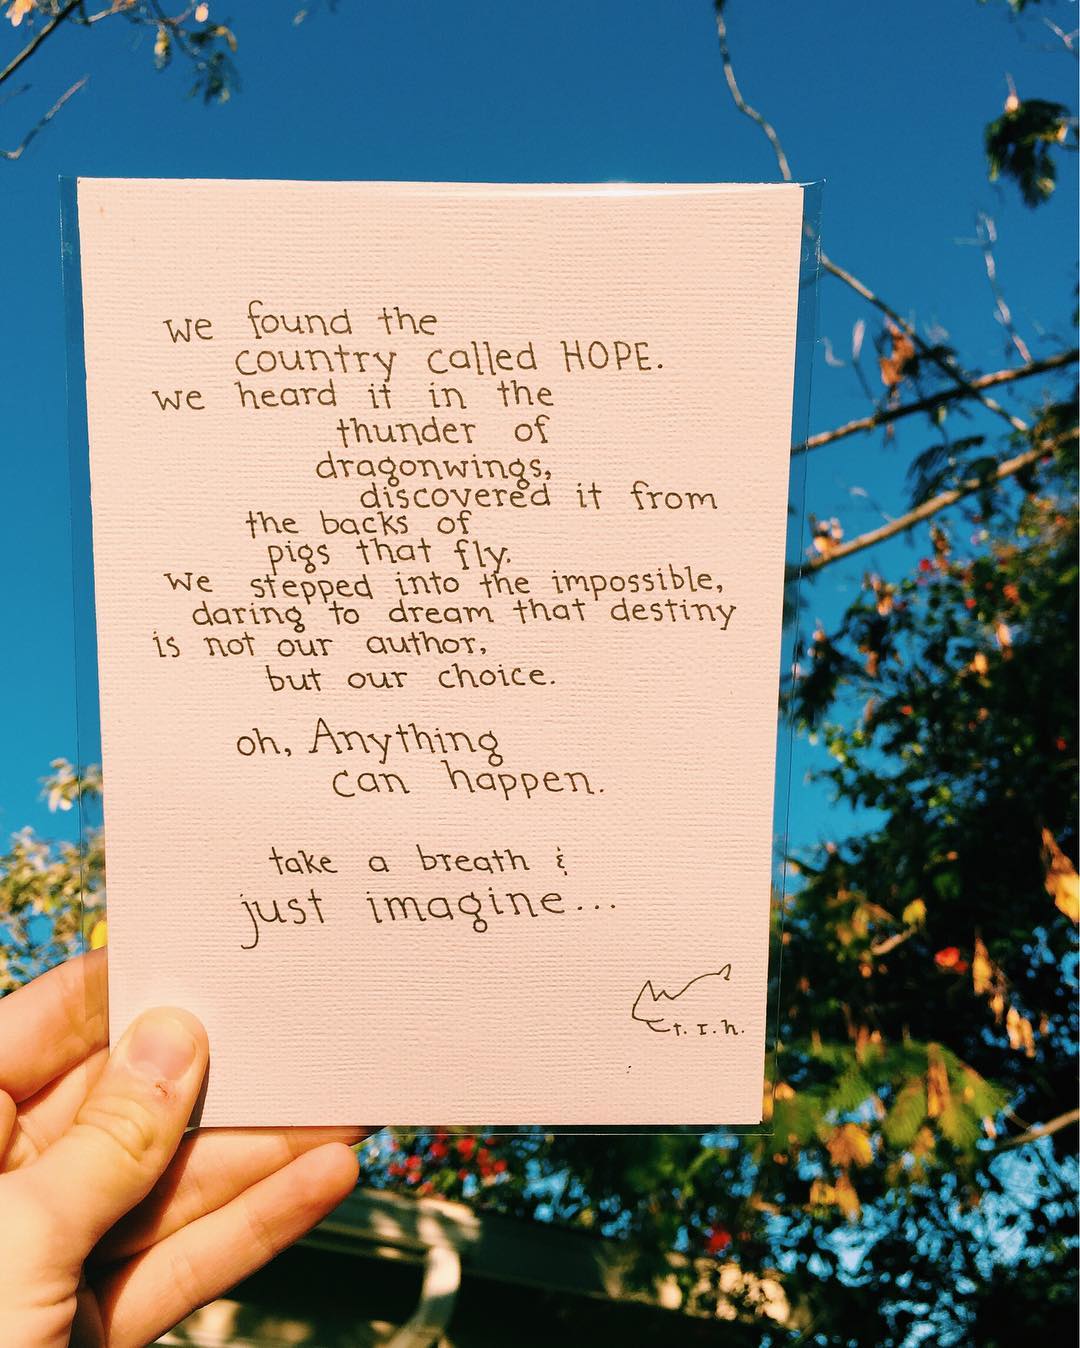 we found the
country called HOPE.
we heard it in the
thunder of
dragonwings,
discovered it from
the backs of
pigs that fly.
we stepped into the impossible,
daring to dream that destiny
is not our author,
but our choice.
oh, Anything
can happen.
take a breath &
just imagine...
t.r.h.